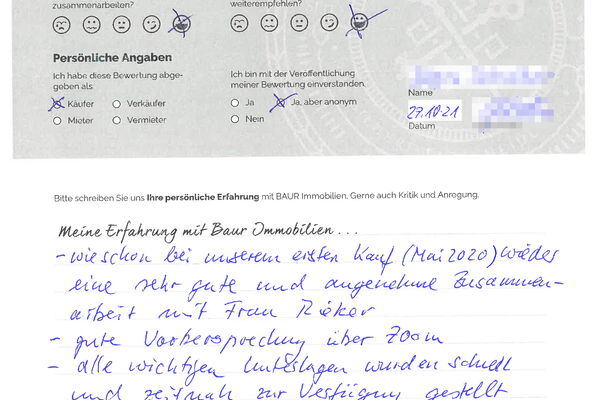 zusammenarbeiten?
weiterempfehlen?
Persönliche Angaben
Ich habe diese Bewertung abge-
geben als:
Käufer Verkäufer
Mieter Vermieter
Ich bin mit der Veröffentlichung
meiner Bewertung einverstanden.
Ja Ja, aber anonym
Nein
Name
27.10.21
Datum
Bitte schreiben Sie uns Ihre persönliche Erfahrung mit BAUR Immobilien. Gerne auch Kritik und Anregung.
Meine Erfahrung mit Baur Immobilien...
- wie schon bei unserem ersten Kauf (Mai 2020) wieder
eine sehr gute und angenehme Zusammen-
arbeit mit Frau Rieker
- gute Vorbesprechung über Zoom
- alle wichtigen Unterlagen wurden schnell
und zeitnah zur Verfügung gestellt